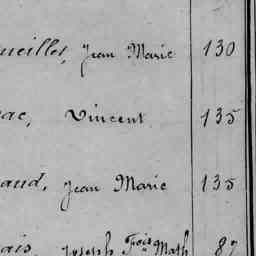 ueillet, Jean Marie 130
ac, Vincent 135
aud, Jean Marie 135
ais, Joseph Fois Math 87